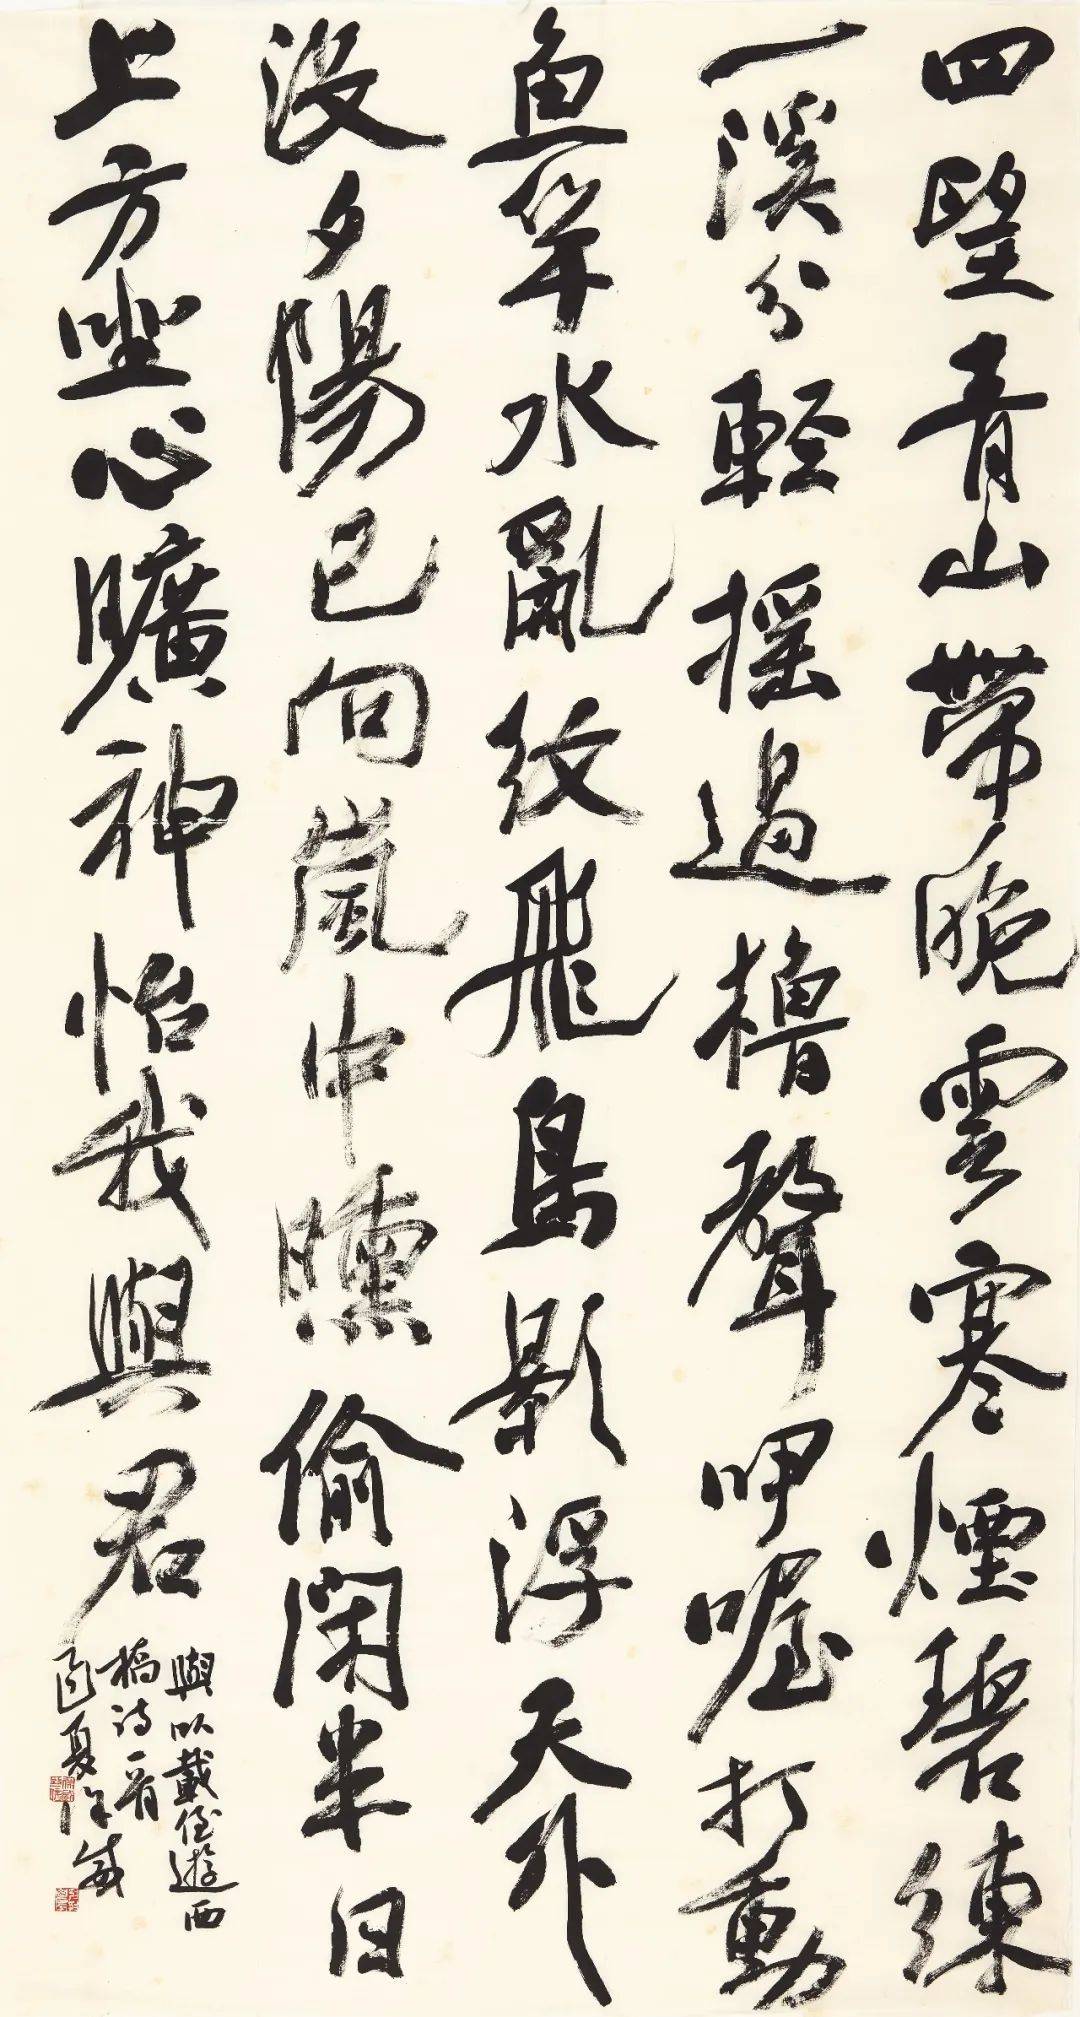 四望青山帶晚雲寒煙碧練
一溪分輕摇過櫓聲呷喔打動
魚竿水亂紋飛鳥影浮天外
没夕陽已向嵐中曛偷閑半日
上方坐心曠神怡我與君
與以戴侄遊西
橋詩一首
夏 徐